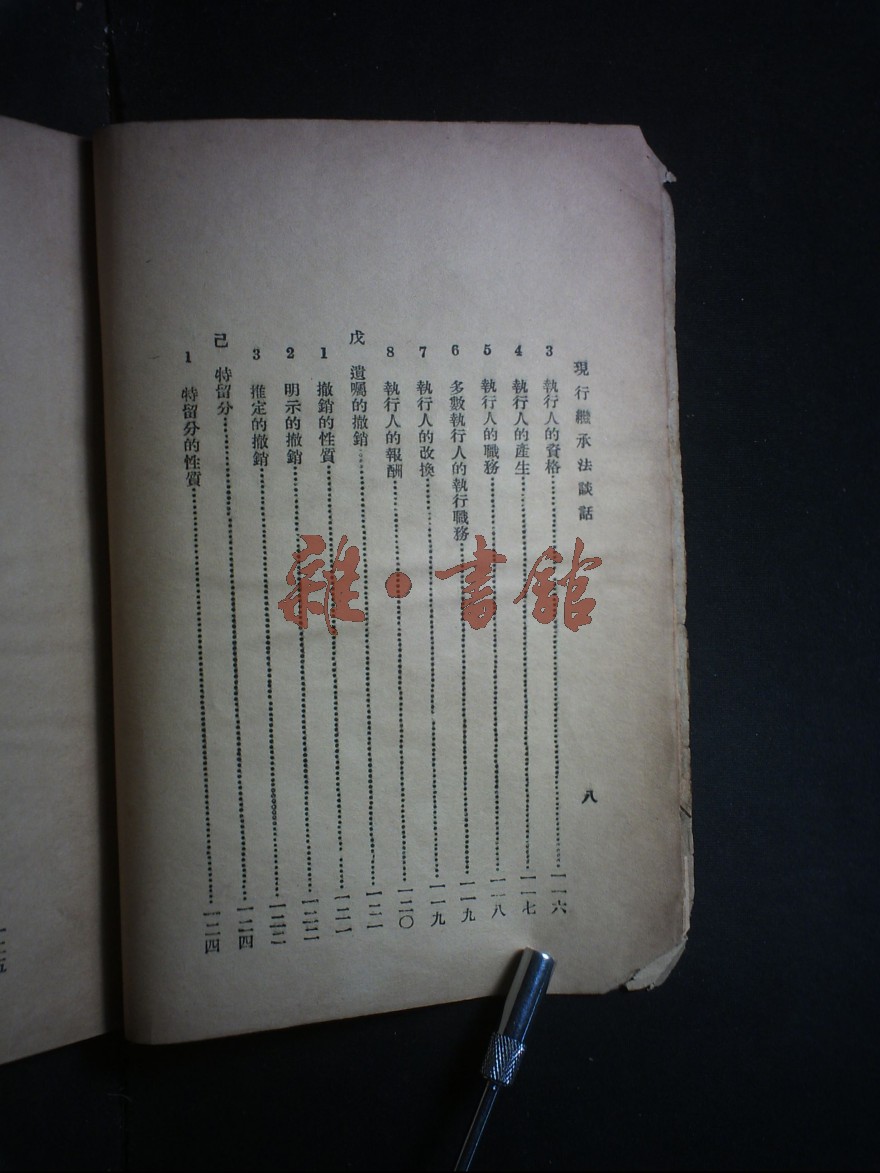 現行繼承法談話
八
3 執行人的資格 一一六
4 執行人的產生 一一七
5 執行人的職務 一一八
6 多數執行人的執行職務 一一九
7 執行人的改換 一一九
8 執行人的報酬 一二〇
戊 遺囑的撤銷 一二一
1 撤銷的性質 一二一
2 明示的撤銷 一二二
3 推定的撤銷 一二四
己 特留分 一二四
1 特留分的性質 一二四
雜·書館